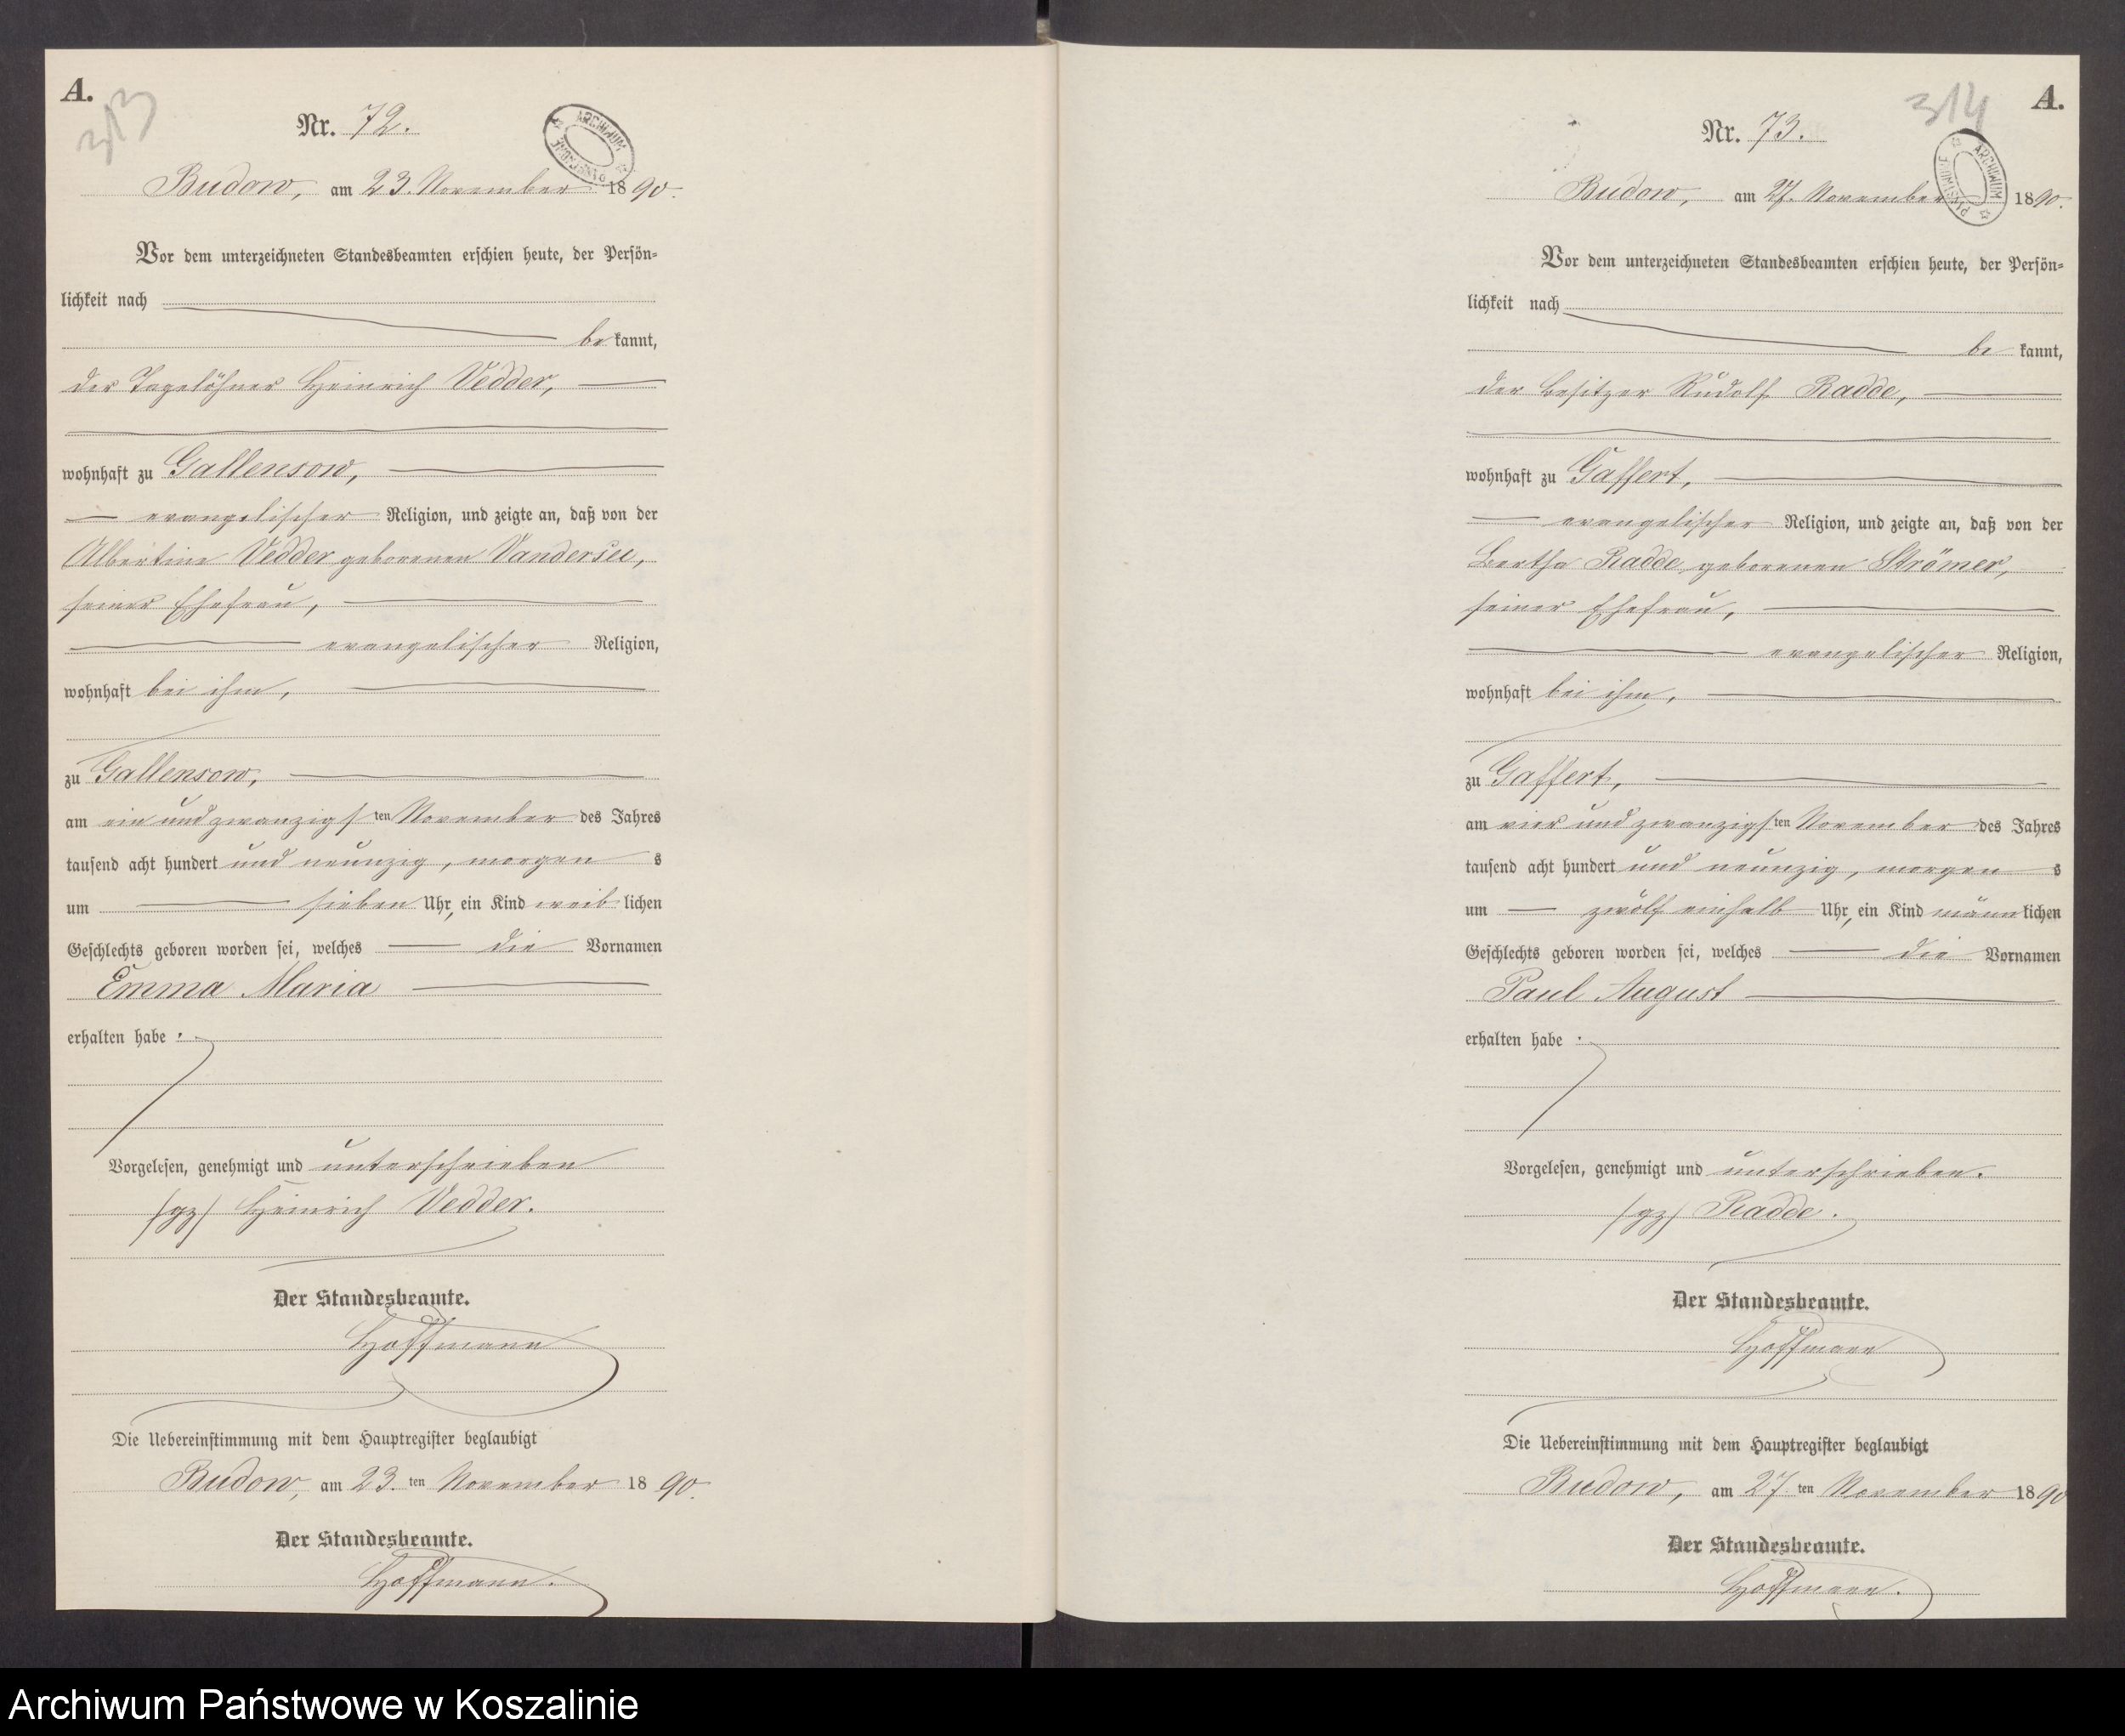 A.
313
Nr. 72.
ARCHIWUM PAŃSTWOWE
Budow, am 23. November 1890.
Vor dem unterzeichneten Standesbeamten erschien heute, der Persön-
lichkeit nach
bekannt,
der Tagelöhner Heinrich Vedder,
wohnhaft zu Gallensow,
evangelischer Religion, und zeigte an, daß von der
Albertine Vedder geborenen Vandersee,
seiner Ehefrau,
evangelischer Religion,
wohnhaft bei ihm,
zu Gallensow,
am ein und zwanzigsten November des Jahres
tausend acht hundert und neunzig, morgens
um sieben Uhr, ein Kind weiblichen
Geschlechts geboren worden sei, welches die Vornamen
Emma Maria
erhalten habe.
Vorgelesen, genehmigt und unterschrieben
(gz) Heinrich Vedder.
Der Standesbeamte.
Hoffmann
Die Uebereinstimmung mit dem Hauptregister beglaubigt
Budow, am 23.ten November 1890.
Der Standesbeamte.
Hoffmann.
A.
314
Nr. 73.
ARCHIWUM PAŃSTWOWE
Budow, am 27. November 1890.
Vor dem unterzeichneten Standesbeamten erschien heute, der Persön-
lichkeit nach
bekannt,
der Besitzer Rudolf Radde,
wohnhaft zu Gaffert,
evangelischer Religion, und zeigte an, daß von der
Bertha Radde, geborenen Strömer,
seiner Ehefrau,
evangelischer Religion,
wohnhaft bei ihm,
zu Gaffert,
am vier und zwanzigsten November des Jahres
tausend acht hundert und neunzig, morgens
um zwölf einhalb Uhr, ein Kind männlichen
Geschlechts geboren worden sei, welches die Vornamen
Paul August
erhalten habe.
Vorgelesen, genehmigt und unterschrieben.
(gz) Radde.
Der Standesbeamte.
Hoffmann
Die Uebereinstimmung mit dem Hauptregister beglaubigt
Budow, am 27.ten November 1890
Der Standesbeamte.
Hoffmann.
Archiwum Państwowe w Koszalinie